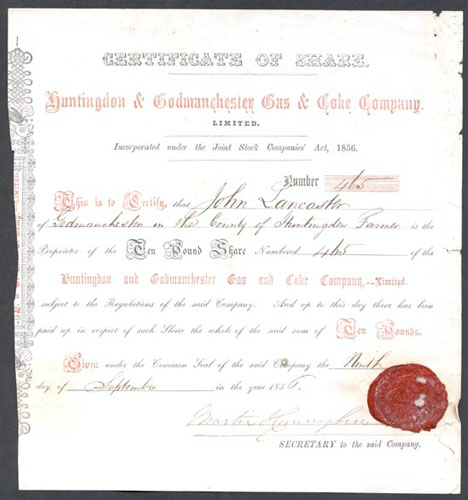 CERTIFICATE OF SHARE.
Huntingdon & Godmanchester Gas & Coke Company.
LIMITED.
Incorporated under the Joint Stock Companies' Act, 1856.
Number 465
This is to Certify, that John Lancaster
of Godmanchester in the County of Huntingdon Farmer is the
Proprietor of the Ten Pound Share Numbered 465 of the
Huntingdon and Godmanchester Gas and Coke Company,—Limited.
subject to the Regulations of the said Company. And up to this day there has been
paid up in respect of such Share the whole of the said sum of Ten Pounds.
Given under the Common Seal of the said Company the Ninth
day of September in the year 185
Martin
SECRETARY to the said Company.